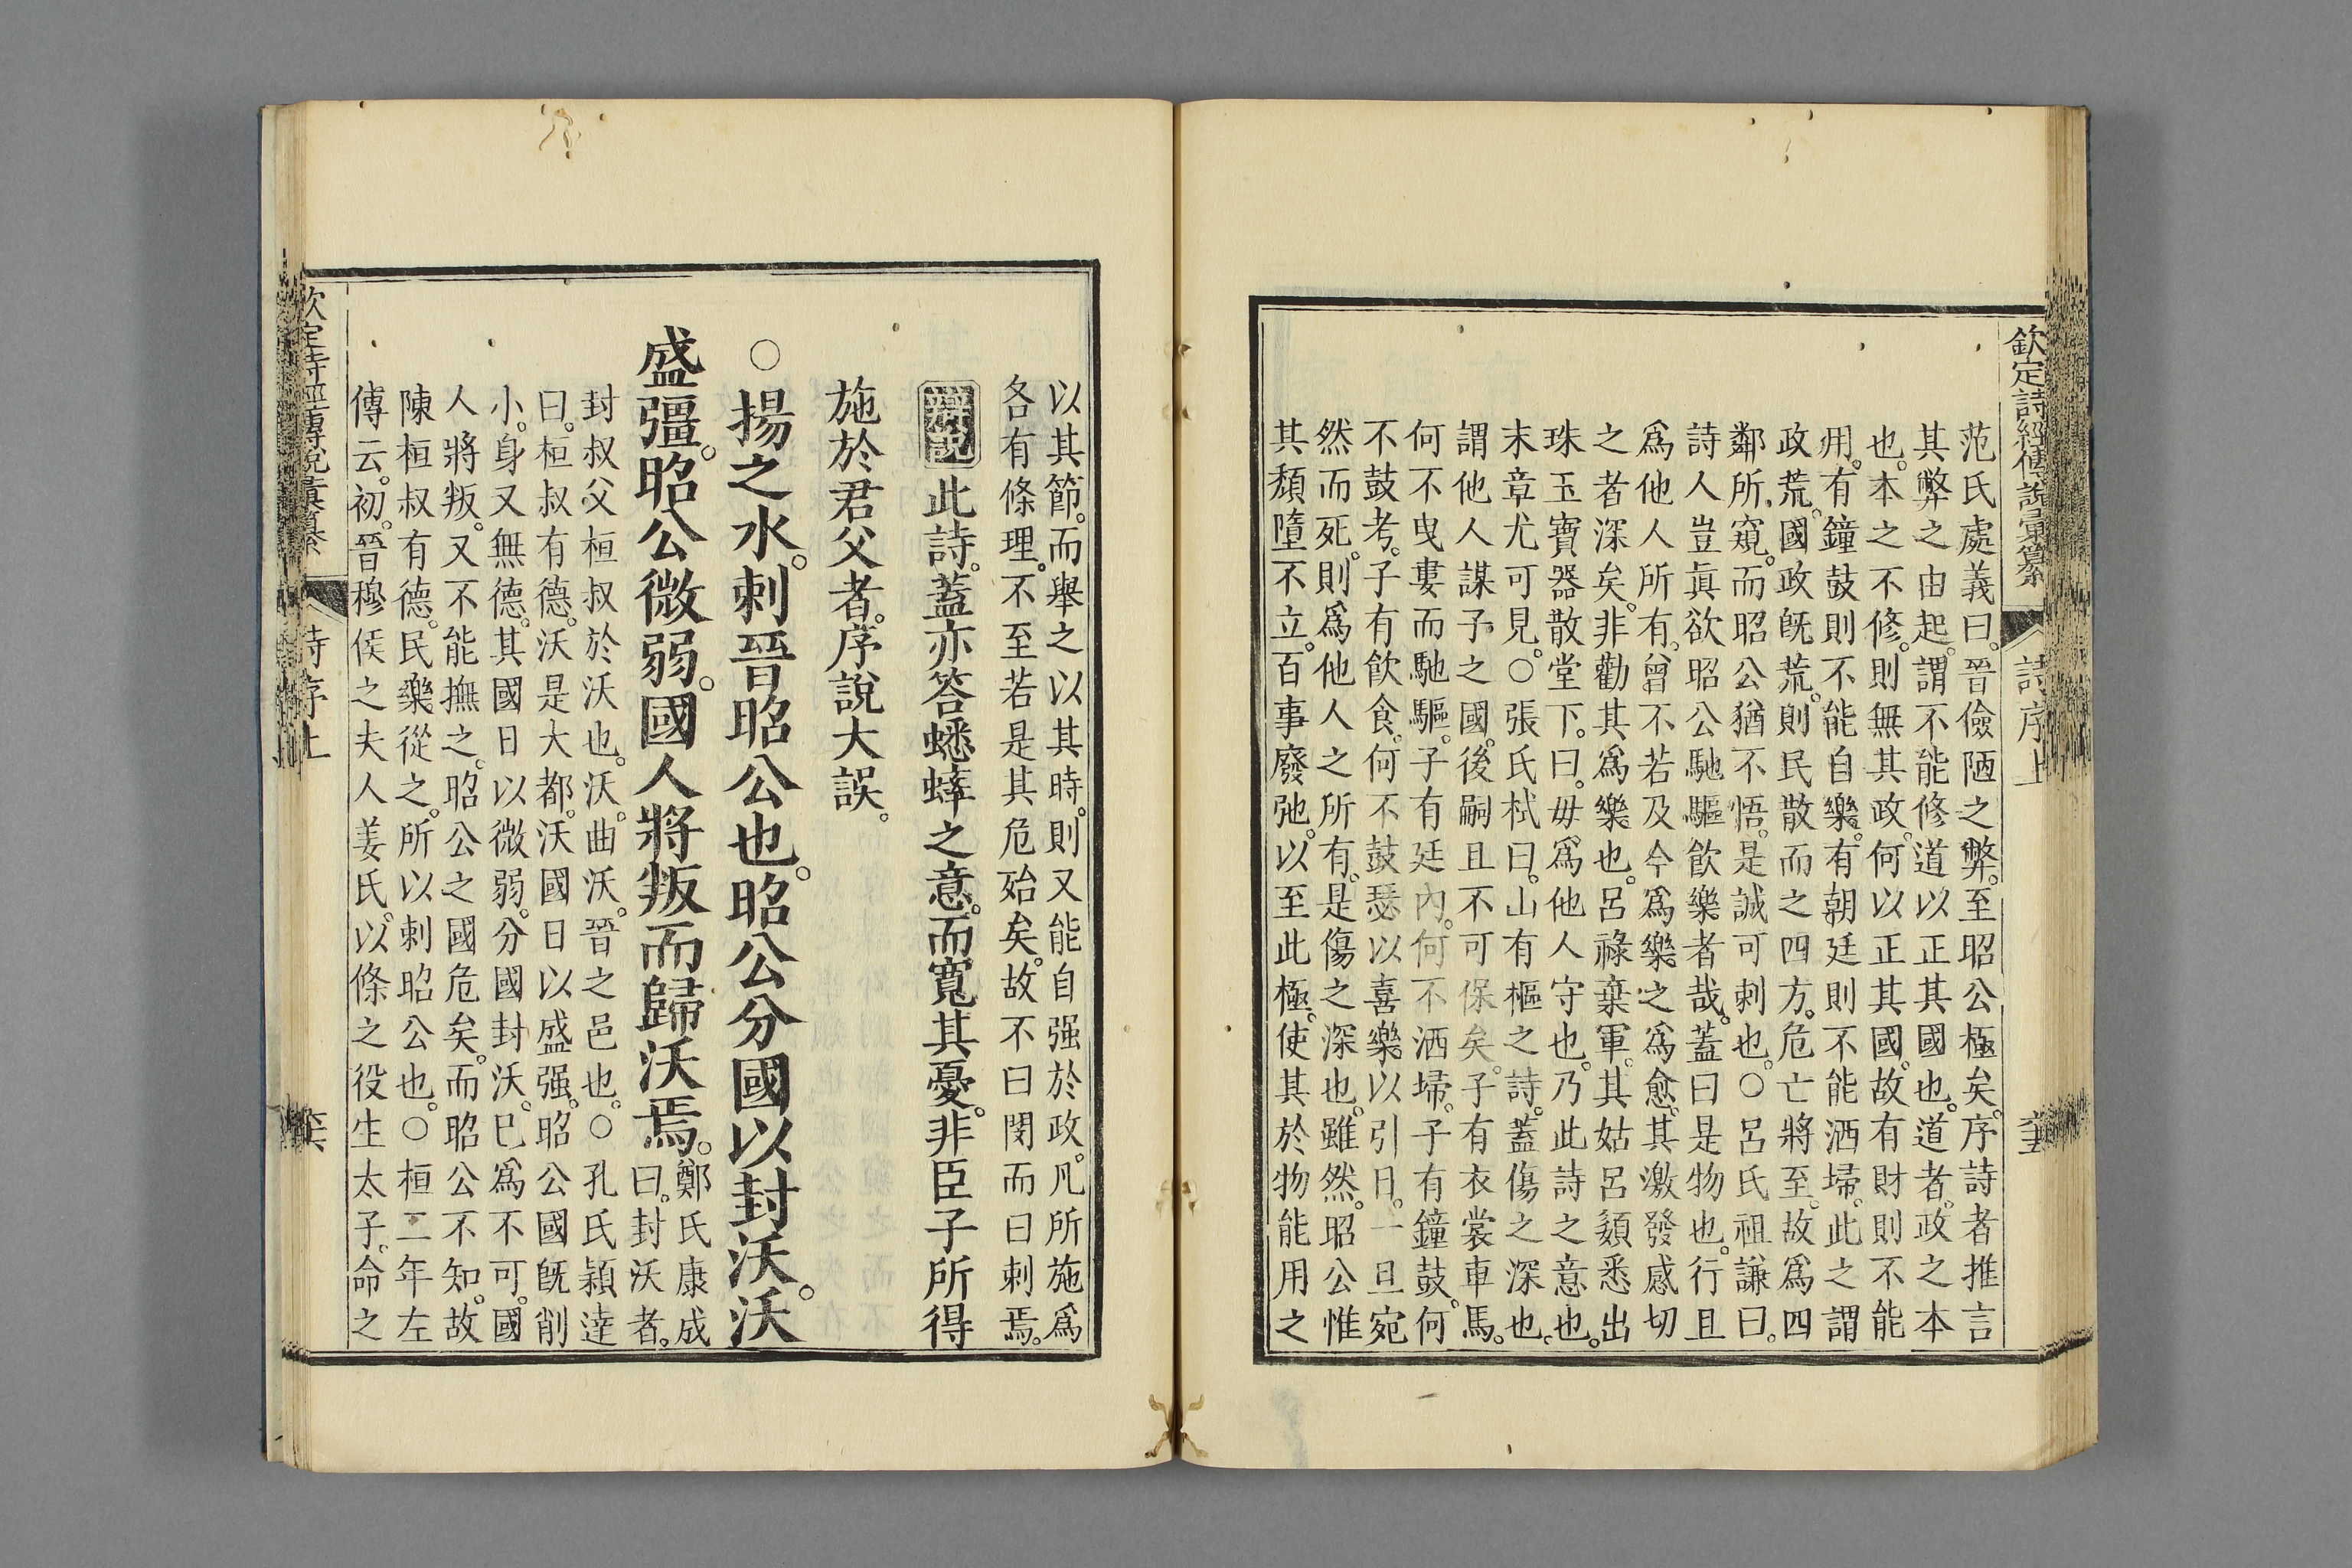 欽定詩經傳說彙纂 詩序上
范氏處義曰。晉儉陋之弊。至昭公極矣。序詩者推言
其弊之由起。謂不能修道以正其國也。道者。政之本
也。本之不修。則無其政。何以正其國。故有財則不能
用。有鐘鼓則不能自樂。有朝廷則不能洒埽。此之謂
政荒。國政旣荒。則民散而之四方。危亡將至。故爲四
鄰所窺。而昭公猶不悟。是誠可刺也。○呂氏祖謙曰。
詩人豈眞欲昭公馳驅飮樂者哉。蓋曰是物也。行且
爲他人所有。曾不若及今爲樂之爲愈。其激發感切
之者深矣。非勸其爲樂也。呂祿棄軍。其姑呂嬃悉出
珠玉寶器散堂下。曰。毋爲他人守也。乃此詩之意也。
末章尤可見。○張氏栻曰。山有樞之詩。蓋傷之深也。
謂他人謀子之國。後嗣且不可保矣。子有衣裳車馬。
何不曳婁而馳驅。子有廷內。何不洒埽。子有鐘鼓。何
不鼓考。子有飮食。何不鼓瑟以喜樂以引日。一旦宛
然而死。則爲他人之所有。是傷之深也。雖然。昭公惟
其頹墮不立。百事廢弛。以至此極。使其於物能用之
以其節。而舉之以其時。則又能自强於政。凡所施爲
各有條理。不至若是其危殆矣。故不曰閔而曰刺焉。
辯說 此詩。蓋亦答蟋蟀之意。而寬其憂。非臣子所得
施於君父者。序說大誤。
○揚之水。刺晉昭公也。昭公分國以封沃。沃
盛彊。昭公微弱。國人將叛而歸沃焉。鄭氏康成曰。封沃者。
封叔父桓叔於沃也。沃。曲沃。晉之邑也。○孔氏穎達
曰。桓叔有德。沃是大都。沃國日以盛强。昭公國旣削
小。身又無德。其國日以微弱。分國封沃。已爲不可。國
人將叛。又不能撫之。昭公之國危矣。而昭公不知。故
陳桓叔有德。民樂從之。所以刺昭公也。○桓二年左
傳云。初。晉穆侯之夫人姜氏。以條之役生太子。命之
欽定詩經傳說彙纂 詩序上